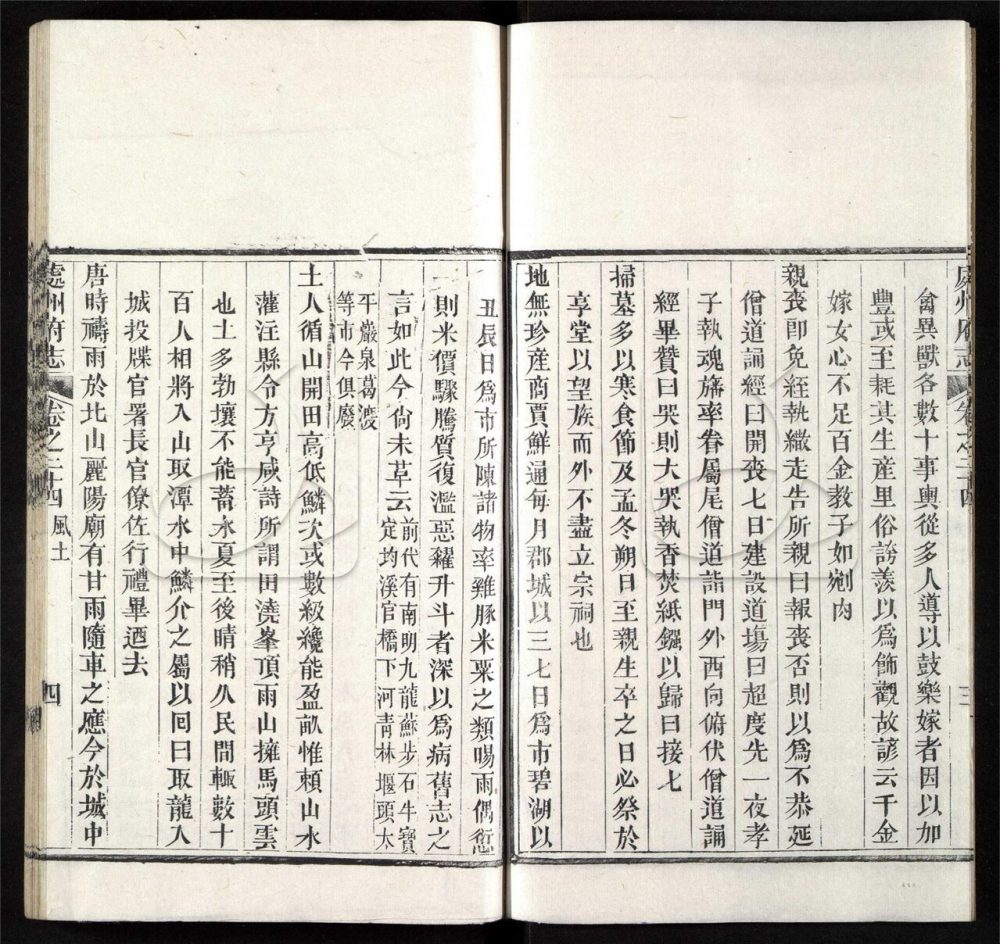 處州府志 卷之二十四 三
禽異獸各數十事輿從多人導以鼓樂嫁者因以加
豐或至耗其生産里俗誇羨以爲飾觀故諺云千金
嫁女心不足百金教子如剜肉
親喪即免絰執繖走告所親曰報喪否則以爲不恭延
僧道誦經曰開喪七日建設道場曰超度先一夜孝
子執魂旛率眷屬尾僧道詣門外西向俯伏僧道誦
經畢贊曰哭則大哭執香焚紙鏹以歸曰接七
掃墓多以寒食節及孟冬朔日至親生卒之日必祭於
享堂以望族而外不盡立宗祠也
地無珍産商賈鮮通每月郡城以三七日爲市碧湖以
丑辰日爲市所陳諸物率雞豚米粟之類暘雨偶愆
則米價驟騰質復濫惡糴升斗者深以爲病舊志之
言如此今尙未草云前代有南明九龍蘇步石牛寶
定均溪官橋下河靑林堰頭太
平巖泉葛渡
等市今俱廢
土人循山開田高低鱗次或數級纔能盈畝惟賴山水
灌注縣令方亨咸詩所謂田澆峯頂雨山擁馬頭雲
也土多勃壤不能蓄水夏至後晴稍久民間輙數十
百人相將入山取潭水中鱗介之屬以回曰取龍入
城投牒官署長官僚佐行禮畢迺去
唐時禱雨於北山麗陽廟有甘雨隨車之應今於城中
處州府志 卷之二十四 風土 四